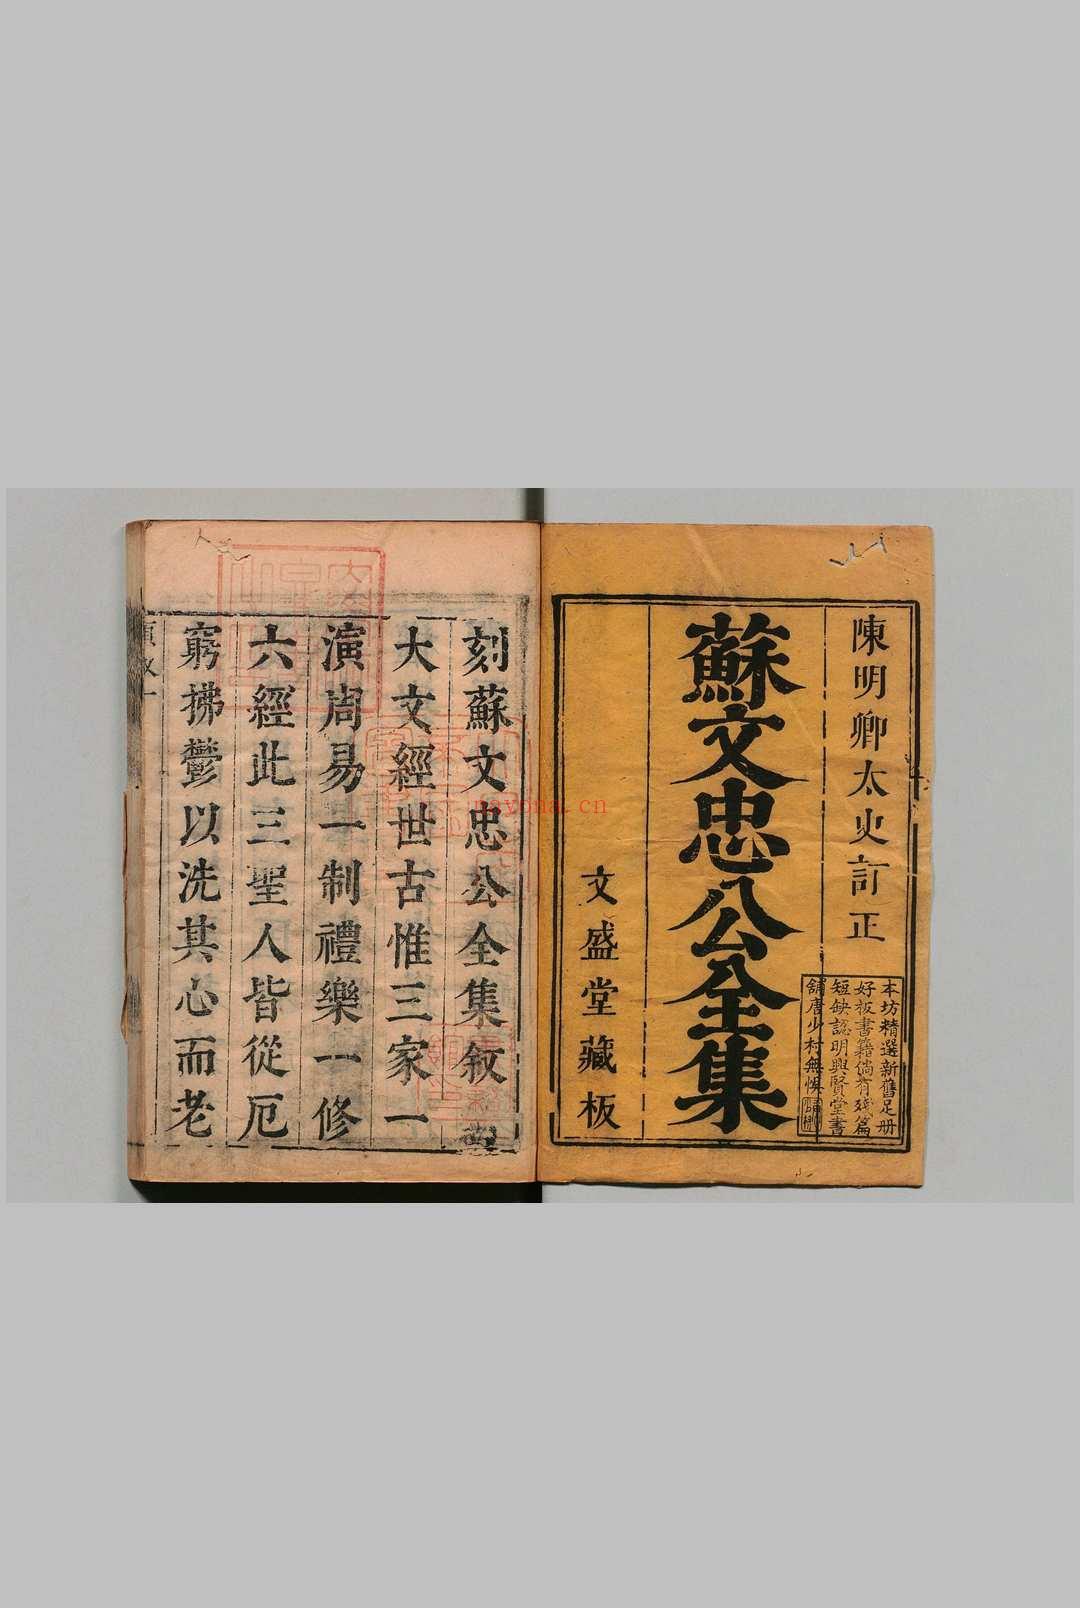 陳明卿太史訂正
蘇文忠公全集
文盛堂藏板
本坊精選新舊足册
好板書籍倘有殘篇
短缺認明興賢堂書
舖唐少村無悞
刻蘇文忠公全集叙
大文經世古惟三家一
演周易一制禮樂一修
六經此三聖人皆從厄
窮拂鬱以洗其心而老
nayona.cn